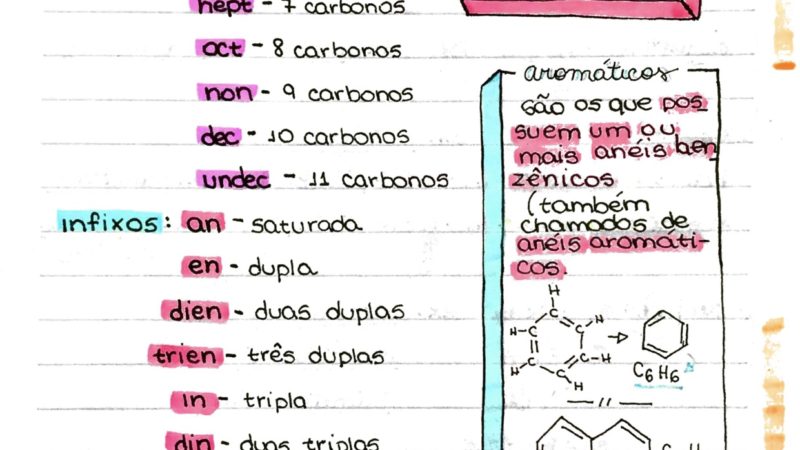 hept - 7 carbonos
oct - 8 carbonos
non - 9 carbonos
dec - 10 carbonos
undec - 11 carbonos
infixos: an - saturada
en - dupla
dien - duas duplas
trien - três duplas
in - tripla
diin - duas triplas
aromáticos
são os que pos
suem um ou
mais anéis ben
zênicos
(também
chamados de
anéis aromáti-
cos.
H
H-C C H
C C-H
H C C
H
C6H6